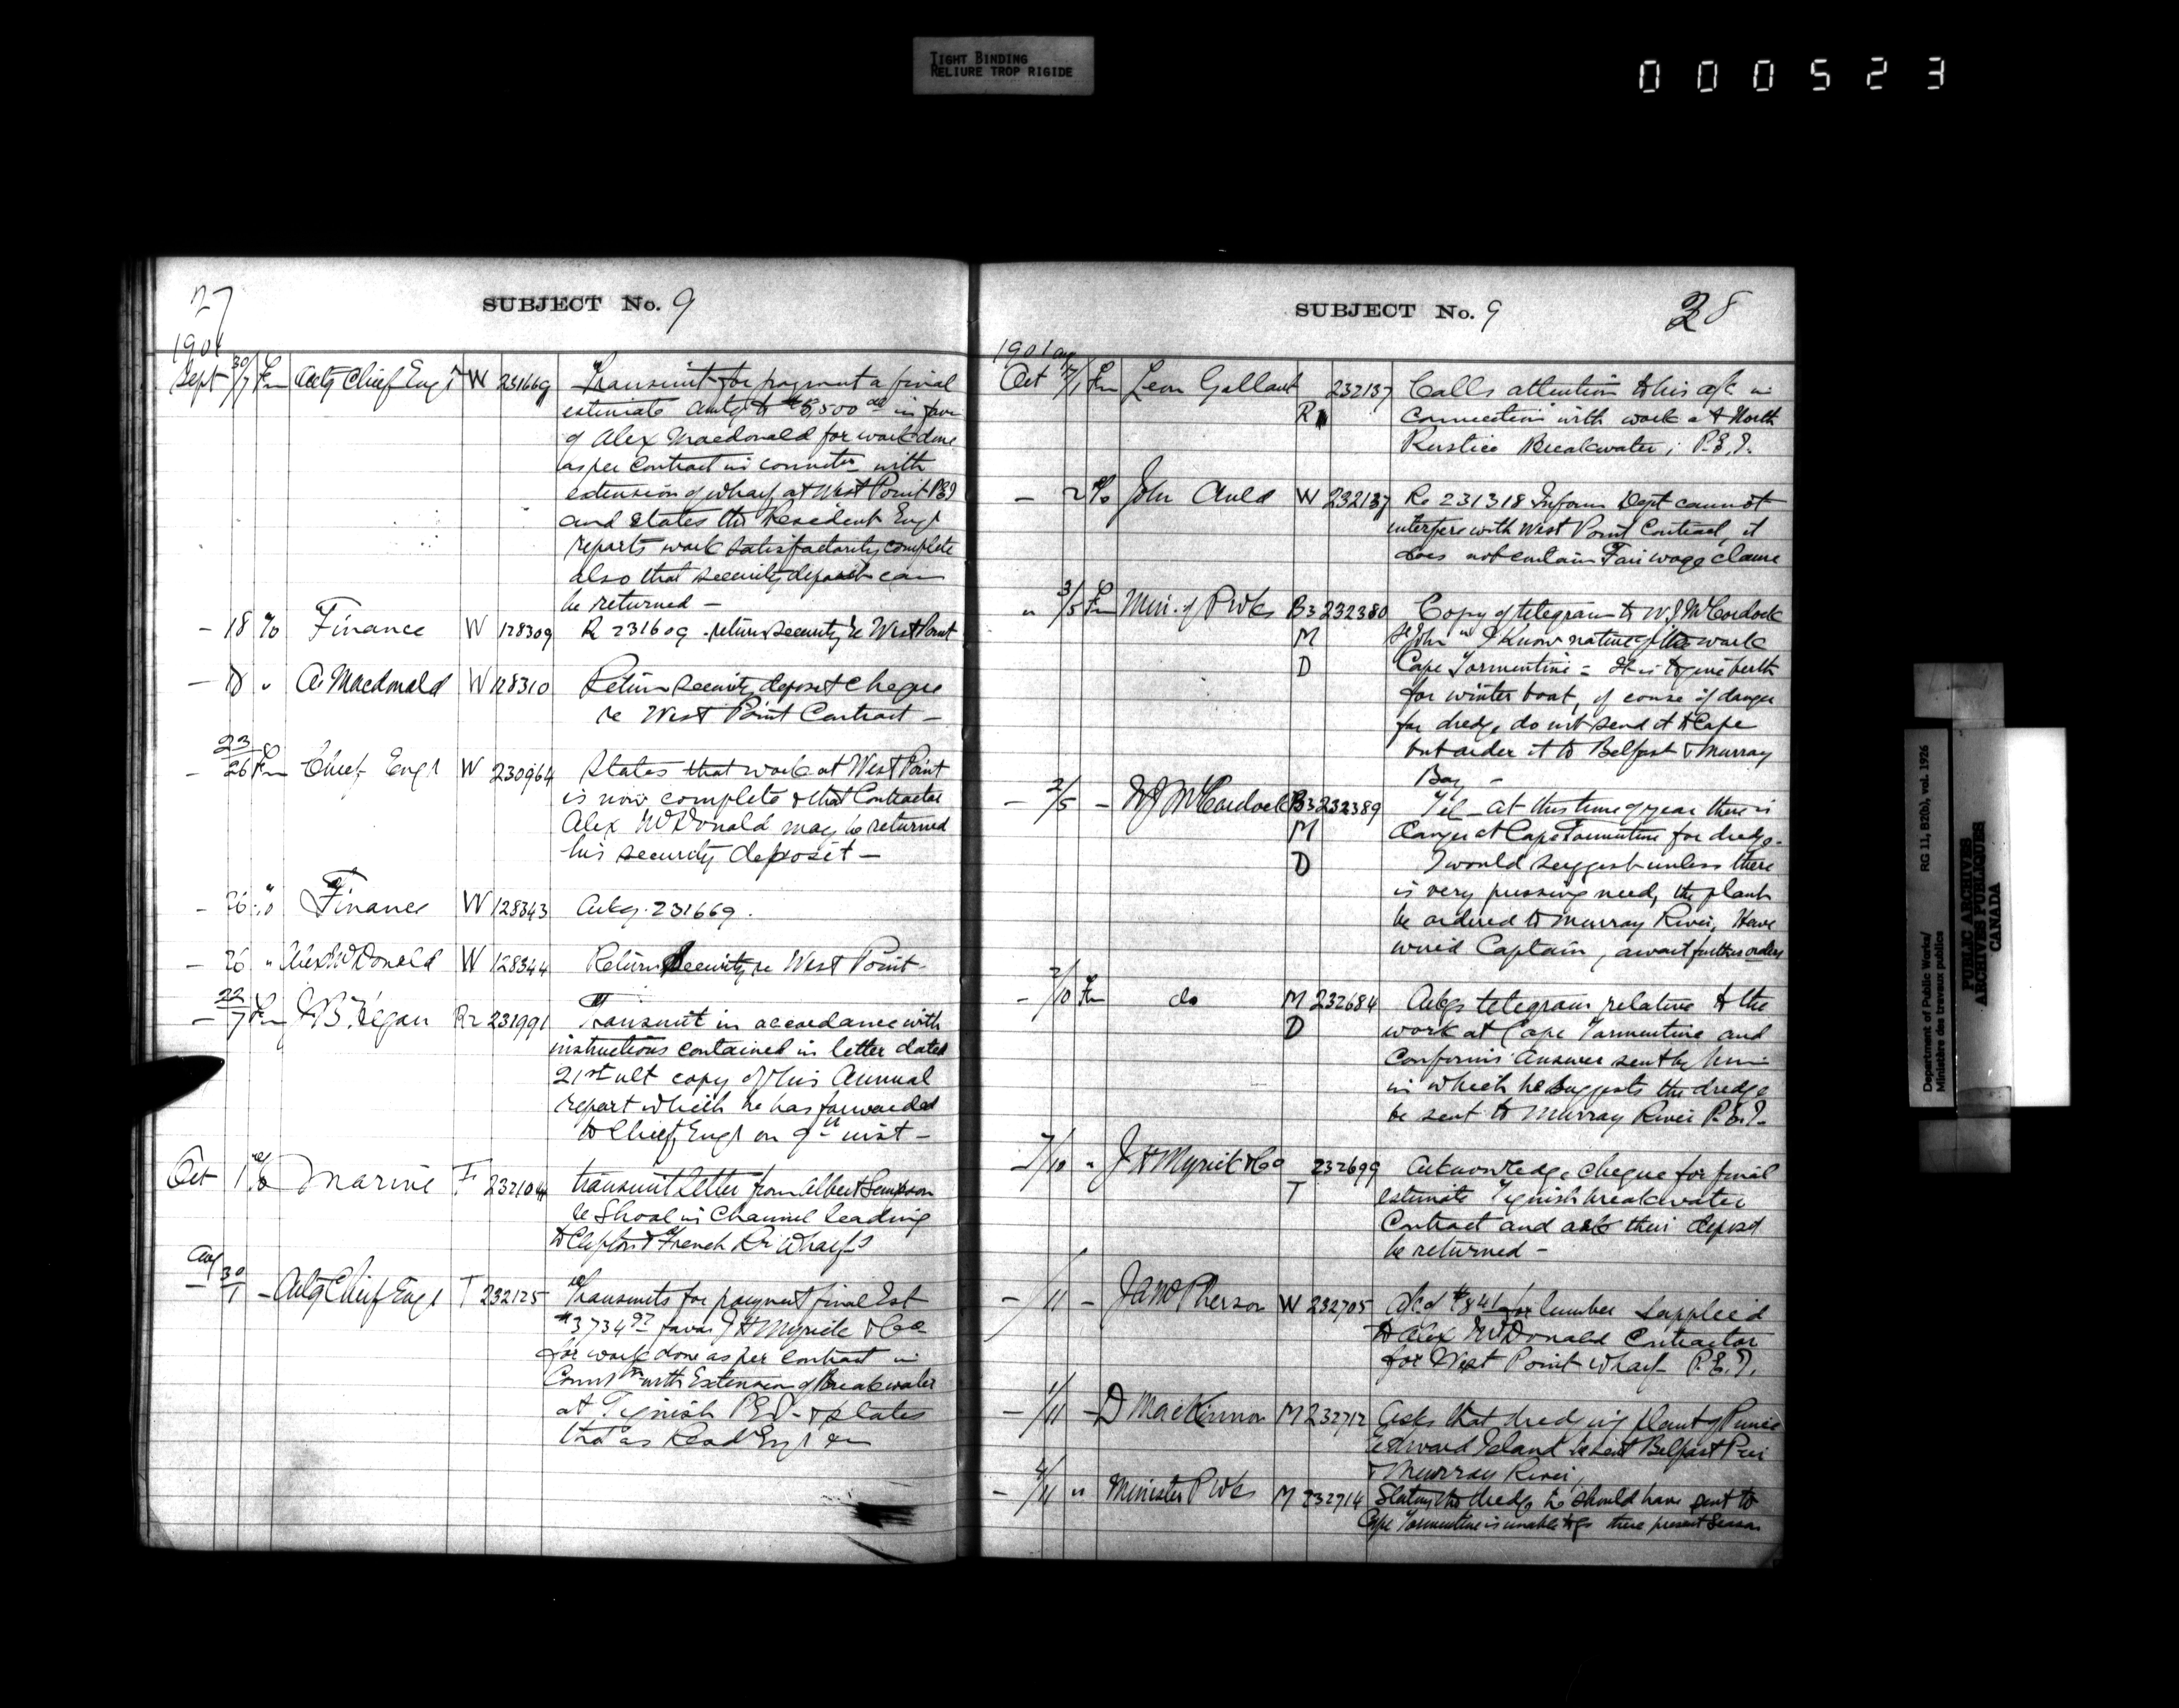 TIGHT BINDING
RELIURE TROP RIGIDE
000523
27
SUBJECT No. 9
1901
Sept 30/7 Fm Actg Chief Engr W 231669 Transmit for payment a final
estimate amtg to $5,500 00 in favr
of Alex Macdonald for work done
as per contract in connctn with
extension of wharf at West Point PEI
and states tht Resident Engr
reports work satisfactorily complete
also that security deposit can
be returned —
— 18 To Finance W 128309 R 231609 return security re West Point
— 18 " A. Macdonald W 128310 Return security deposit cheque
re West Point Contract —
— 23/26 Fm Chief Engr W 230964 States that work at West Point
is now complete & that Contractor
Alex McDonald may be returned
his security deposit —
— 26 " Finance W 128343 Ackg. 231669.
— 26 " Alex McDonald W 128344 Return Security re West Point
— 22/7 Fm J B Hegan Rr 231991 Transmit in accordance with
instructions contained in letter dated
21st ult copy of this Annual
report which he has forwarded
to Chief Engr on 9th inst —
Oct 1 Marine F 232104 transmit letter from Albert Simpson
re Shoal in Channel leading
to Clifton & French Rr Wharfs
Aug 30/1 — Actg Chief Engr T 232125 Transmits for payment final Est
$3734 97 favor J H Myrick & Co
for work done as per contract in
Connctn with Extension of Breakwater
at Tignish P.E.I. & states
that as Resd Engr
SUBJECT No. 9
28
1901
Oct Fm Leon Gallant 232137 Calls attention to his a/c in
R connection with work at North
Rustico Breakwater, P.E.I.
— 2 To John Auld W 232137 Re 231318 Inform Dept cannot
interfere with West Point Contract, it
does not contain Fair wage clause
" 3/5 Fm Min. of P Wks B3 232380 Copy of telegram to W J McCordock
M St John " I know nature of the work
D Cape Tormentine = It is to give berth
for winter boat, of course if danger
for dredge do not send it to Cape
but order it to Belfast & Murray
Bay —
— 2/5 — W J McCordock B3 232389 Tel — At this time of year there is
M danger at Cape Tormentine for dredge.
D I would suggest unless there
is very pressing need, the plant
be ordered to Murray River, Have
wired Captain, await further orders
— 2/10 Fm do M 232684 Ackgs telegram relative to the
D work at Cape Tormentine and
confirms answer sent by him
in which he suggests the dredge
be sent to Murray River P.E.I.
— 7/10 " J H Myrick & Co 232699 Acknowledge cheque for final
T estimate Tignish breakwater
Contract and asks their deposit
be returned —
— /11 — J A McPherson W 232705 $841 for lumber supplied
to Alex McDonald Contractor
for West Point wharf P.E.I.
— 1/11 — D MacKinnon M 232712 Asks that dredging plant of Prince
Edward Island be sent Belfast Pier
& Murray River,
— 4/11 " Minister P Wks M 232714 Stating tht dredge he should have sent to
Cape Tormentine is unable to go there present Season
Department of Public Works/ RG 11, B2(b), vol. 1926
Ministère des travaux publics
PUBLIC ARCHIVES
ARCHIVES PUBLIQUES
CANADA